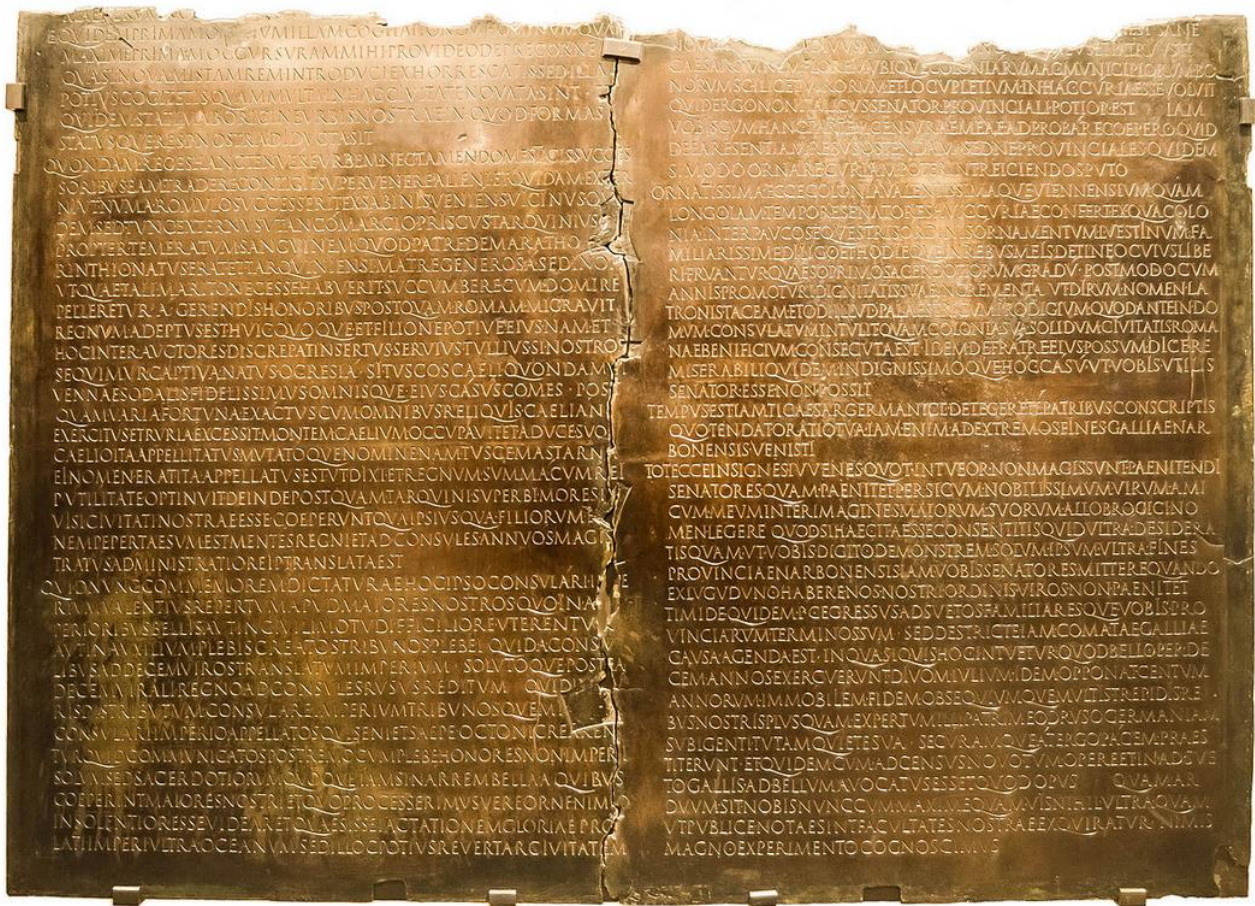 EQVIDEM PRIMAM OMNIVM ILLAM COGITATIONEM HOMINVM QVAM
MAXIME PRIMAM OCCVRSVRAM MIHI PROVIDEO DEPRECOR NE
QVASI NOVAM ISTAM REM INTRODVCI EXHORRESCATIS SED ILLA
POTIVS COGITETIS QVAM MVLTA IN HAC CIVITATE NOVATA SINT
QVIDEM STATIM AB ORIGINE VRBIS NOSTRAE IN QVOD FORMAS
STATVSQVE RES P NOSTRA DIDVCTA SIT
QVONDAM REGES HANC TENVERE VRBEM NEC TAMEN DOMESTICIS SVCCES
SORIBVS EAM TRADERE CONTIGIT SVPERVENERE ALIENI ET QVIDAM EXTER
NI VT NVMA ROMVLO SVCCESSERIT EX SABINIS VENIENS VICINVS QVI
DEM SED TVNC EXTERNVS VT ANCO MARCIO PRISCVS TARQVINIVS
PROPTER TEMERATVM SANGVINEM QVOD PATRE DEMARATHO
RINTHIO NATVS ERAT ET TARQVINIENSI MATRE GENEROSA SED INO
VT QVAE TALI MARITO NECESSE HABVERIT SVCCVMBERE CVM DOMI RE
PELLERETVR A GERENDIS HONORIBVS POSTQVAM ROMAM MIGRAVIT
REGNVM ADEPTVS EST HVIC QVOQVE ET FILIO NEPOTIVE EIVS NAM ET
HOC INTER AVCTORES DISCREPAT INSERTVS SERVIVS TVLLIVS SI NOSTROS
SEQVIMVR CAPTIVA NATVS OCRESIA SI TVSCOS CAELI QVONDAM
VENNAE SODALIS FIDELISSIMVS OMNISQVE EIVS CASVS COMES POS
QVAM VARIA FORTVNA EXACTVS CVM OMNIBVS RELIQVIS CAELIANI
EXERCITVS ETRVRIA EXCESSIT MONTEM CAELIVM OCCVPAVIT ET A DVCE SVO
CAELIO ITA APPELLITATVS MVTATOQVE NOMINE NAM TVSCE MASTARN
EI NOMEN ERAT ITA APPELLATVS EST VT DIXI ET REGNVM SVMMA CVM REI
P VTILITATE OPTINVIT DEINDE POSTQVAM TARQVINI SVPERBI MORES IN
VISI CIVITATI NOSTRAE ESSE COEPERVNT QVA IPSIVS QVA FILIORVM EI
NEMPE PERTAESVM EST MENTES REGNI ET AD CONSVLES ANNVOS MAGIS
TRATVS ADMINISTRATIO REI P TRANSLATA EST
QVID NVNC COMMEMOREM DICTATVRAE HOC IPSO CONSVLARI IMPE
RIVM VALENTIVS REPERTVM APVD MAIORES NOSTROS QVO IN AS
PERIORIBVS BELLIS AVT IN CIVILI MOTV DIFFICILIORE VTERENTVR
AVT IN AVXILIVM PLEBIS CREATOS TRIBVNOS PLEBEI QVID A CONSV
LIBVS AD DECEMVIROS TRANSLATVM IMPERIVM SOLVTOQVE POSTEA
DECEMVIRALI REGNO AD CONSVLES RVSVS REDITVM QVID IN
RIS DISTRIBVTVM CONSVLARE IMPERIVM TRIBVNOSQVE MI
CONSVLARI IMPERIO APPELLATOS QVI SENI ET SAEPE OCTONI CREAREN
TVR QVID COMMVNICATOS POSTREMO CVM PLEBE HONORES NON IMPERI
SOLVM SED SACERDOTIORVM QVOQVE IAM SI NARREM BELLA A QVIBVS
COEPERINT MAIORES NOSTRI ET QVO PROCESSERIMVS VEREOR NE NIMIO
INSOLENTIOR ESSE VIDEAR ET QVAESISSE IACTATIONEM GLORIAE PRO
LATI IMPERI VLTRA OCEANVM SED ILLOC POTIVS REVERTAR CIVITATEM
CAESAR OMNEM FLOREM VBIQVE COLONIARVM AC MVNICIPIORVM BO
NORVM SCILICET VIRORVM ET LOCVPLETIVM IN HAC CVRIA ESSE VOLVIT
QVID ERGO NON ITALICVS SENATOR PROVINCIALI POTIOR EST IAM
VOBIS CVM HANC PARTEM CENSVRAE MEAE ADPROBARE COEPERO QVID
DE EA RE SENTIAM REBVS OSTENDAM SED NE PROVINCIALES QVIDEM
SI MODO ORNARE CVRIAM POTERINT REICIENDOS PVTO
ORNATISSIMA ECCE COLONIA VALENTISSIMAQVE VIENNENSIVM QVAM
LONGO IAM TEMPORE SENATORES HVIC CVRIAE CONFERT EX QVA COLO
NIA INTER PAVCOS EQVESTRIS ORDINIS ORNAMENTVM L VESTINVM FA
MILIARISSIME DILIGO ET HODIEQVE IN REBVS MEIS DETINEO CVIVS LIBE
RI FRVANTVR QVAESO PRIMO SACERDOTIORVM GRADV POST MODO CVM
ANNIS PROMOTVRI DIGNITATIS SVAE INCREMENTA VT DIRVM NOMEN LA
TRONIS TACEAM ET ODI ILLVD PALAESTRICVM PRODIGIVM QVOD ANTE IN DO
MVM CONSVLATVM INTVLIT QVAM COLONIA SVA SOLIDVM CIVITATIS ROMA
NAE BENIFICIVM CONSECVTA EST IDEM DE FRATRE EIVS POSSVM DICERE
MISERABILI QVIDEM INDIGNISSIMOQVE HOC CASV VT VOBIS VTILIS
SENATOR ESSE NON POSSIT
TEMPVS EST IAM TI CAESAR GERMANICE DETEGERE TE PATRIBVS CONSCRIPTIS
QVO TENDAT ORATIO TVA IAM ENIM AD EXTREMOS FINES GALLIAE NAR
BONENSIS VENISTI
TOT ECCE INSIGNES IVVENES QVOT INTVEOR NON MAGIS SVNT PAENITENDI
SENATORES QVAM PAENITET PERSICVM NOBILISSIMVM VIRVM AMI
CVM MEVM INTER IMAGINES MAIORVM SVORVM ALLOBROGICI NO
MEN LEGERE QVOD SI HAEC ITA ESSE CONSENTITIS QVID VLTRA DESIDERA
TIS QVAM VT VOBIS DIGITO DEMONSTREM SOLVM IPSVM VLTRA FINES
PROVINCIAE NARBONENSIS IAM VOBIS SENATORES MITTERE QVANDO
EX LVGVDVNO HABERE NOS NOSTRI ORDINIS VIROS NON PAENITET
TIMIDE QVIDEM P C EGRESSVS ADSVETOS FAMILIARESQVE VOBIS PRO
VINCIARVM TERMINOS SVM SED DESTRICTE IAM COMATAE GALLIAE
CAVSA AGENDA EST IN QVA SI QVIS HOC INTVETVR QVOD BELLO PER DE
CEM ANNOS EXERCVERVNT DIVOM IVLIVM IDEM OPPONAT CENTVM
ANNORVM IMMOBILEM FIDEM OBSEQVIVMQVE MVLTIS TREPIDIS RE
BVS NOSTRIS PLVSQVAM EXPERTVM ILLI PATRI MEO DRVSO GERMANIAM
SVBIGENTI TVTAM QVIETE SVA SECVRAMQVE A TERGO PACEM PRAES
TITERVNT ET QVIDEM CVM AD CENSVS NOVO TVM OPERE ET INADSVE
TO GALLIS AD BELLVM AVOCATVS ESSET QVOD OPVS QVAM AR
DVVM SIT NOBIS NVNC CVM MAXIME QVAMVIS NIHIL VLTRA QVAM
VT PVBLICE NOTAE SINT FACVLTATES NOSTRAE EXQVIRATVR NIMIS
MAGNO EXPERIMENTO COGNOSCIMVS